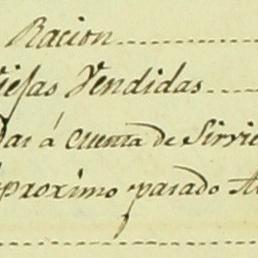 Racion
Viejas Vendidas
das á cuenta de Sirvie
proximo pasado A